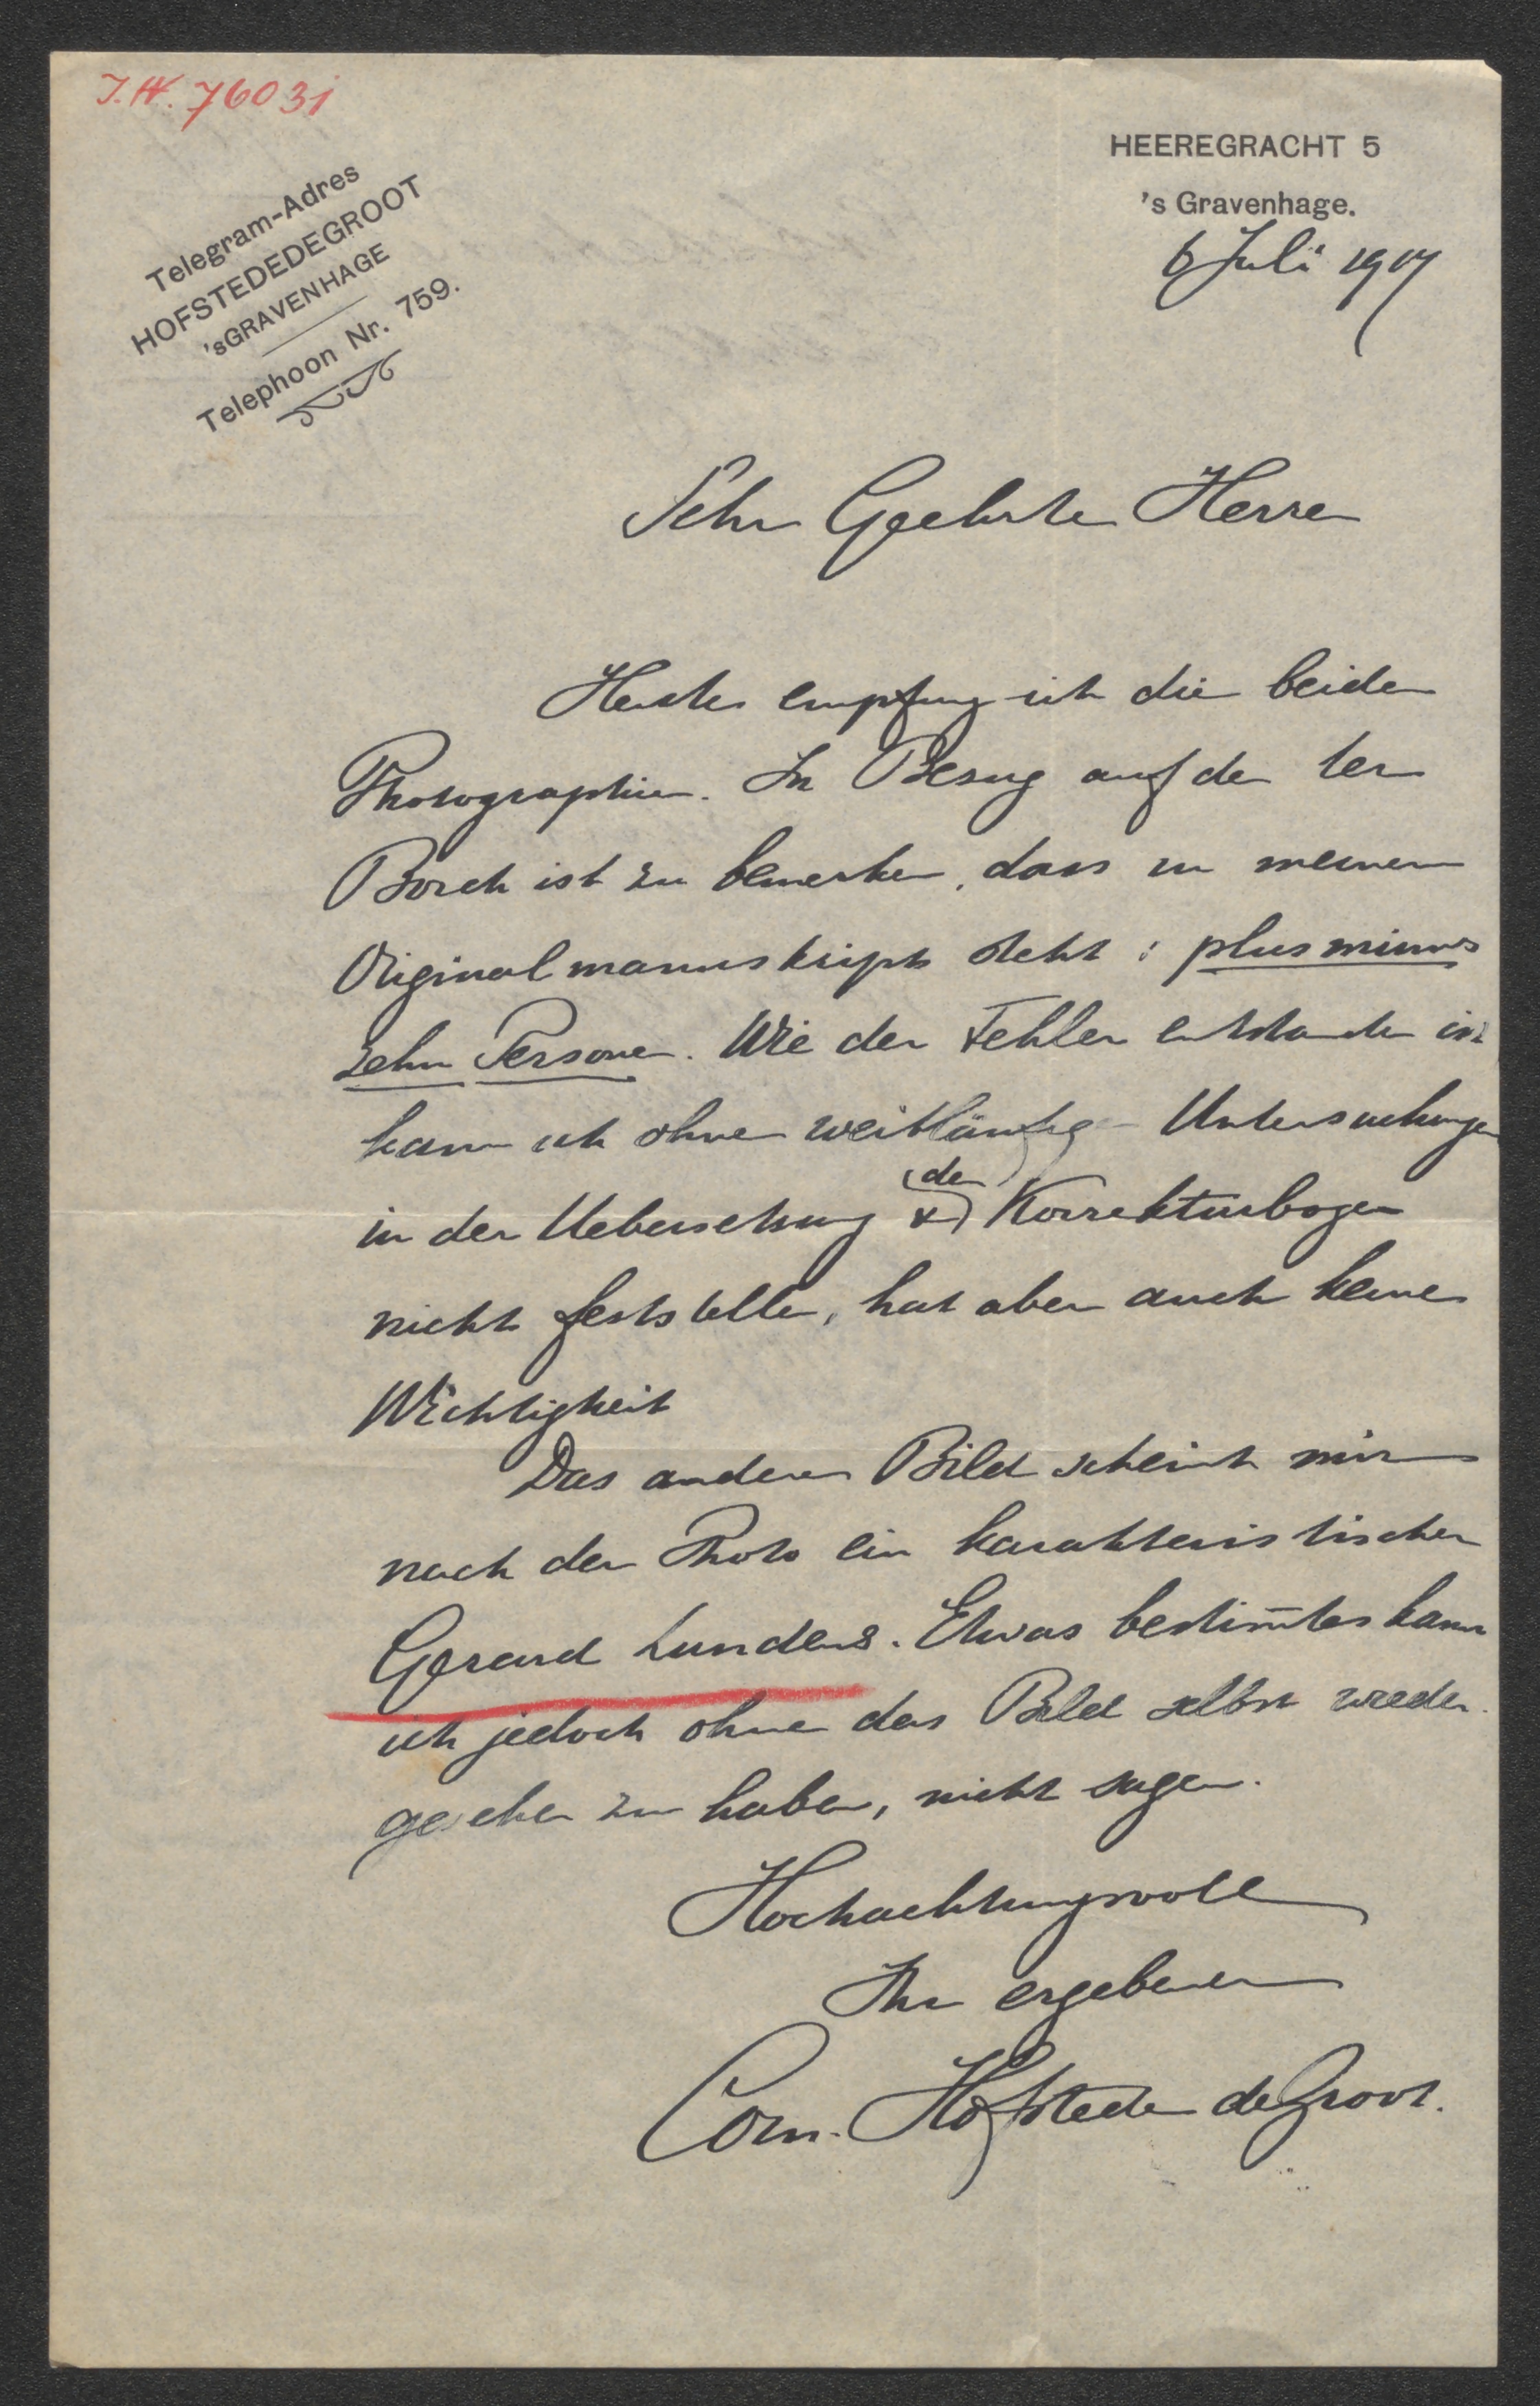 J.N. 76031
Telegram-Adres
HOFSTEDEDEGROOT
'sGRAVENHAGE
Telephoon Nr. 759.
HEEREGRACHT 5
's Gravenhage.
6 Juli 1917
Sehr Geehrte Herren
Heute empfing ich die beiden
Photographien. In Bezug auf den ter
Borch ist zu bemerken, dass in meinem
Originalmanuskript steht: plusminus
zehn Personen. Wie der Fehler entstanden ist
kann ich ohne weitläufige Untersuchungen
in der Uebersetzung & den Korrekturbogen
nicht feststellen, hat aber auch keine
Wichtigkeit
Das andere Bild scheint mir
nach der Photo ein karakteristischer
Gerard Lundens. Etwas bestim̅tes kann
ich jedoch ohne das Bild selbst wieder
gesehen zu haben, nicht sagen.
Hochachtungsvoll
Ihr ergebener
Corn. Hofstede de Groot.